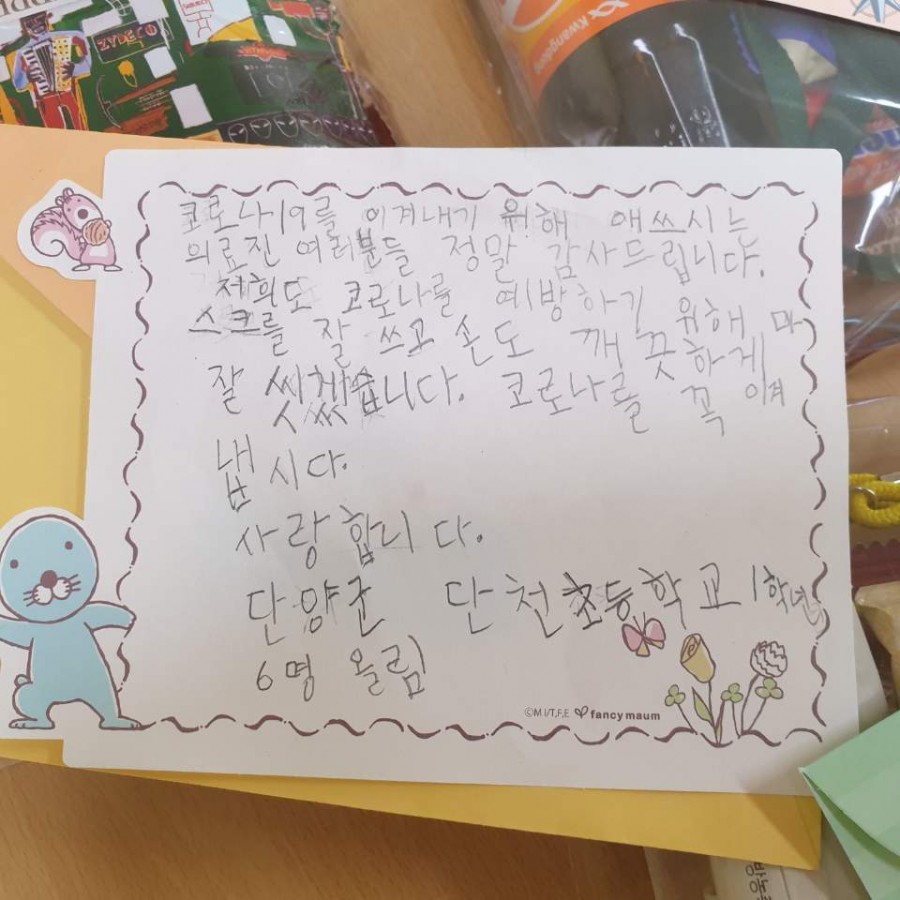 ZYDECO
Kwangdong
코로나19를 이겨내기 위해 애쓰시는
의료진 여러분들 정말 감사드립니다.
저희도 코로나를 예방하기 위해 마
스크를 잘 쓰고 손도 깨끗하게
잘 씻겠습니다. 코로나를 꼭 이겨
냅시다.
사랑합니다.
단양군 단천초등학교 1학년
6명 올림
©M.I/T.F.E fancy maum